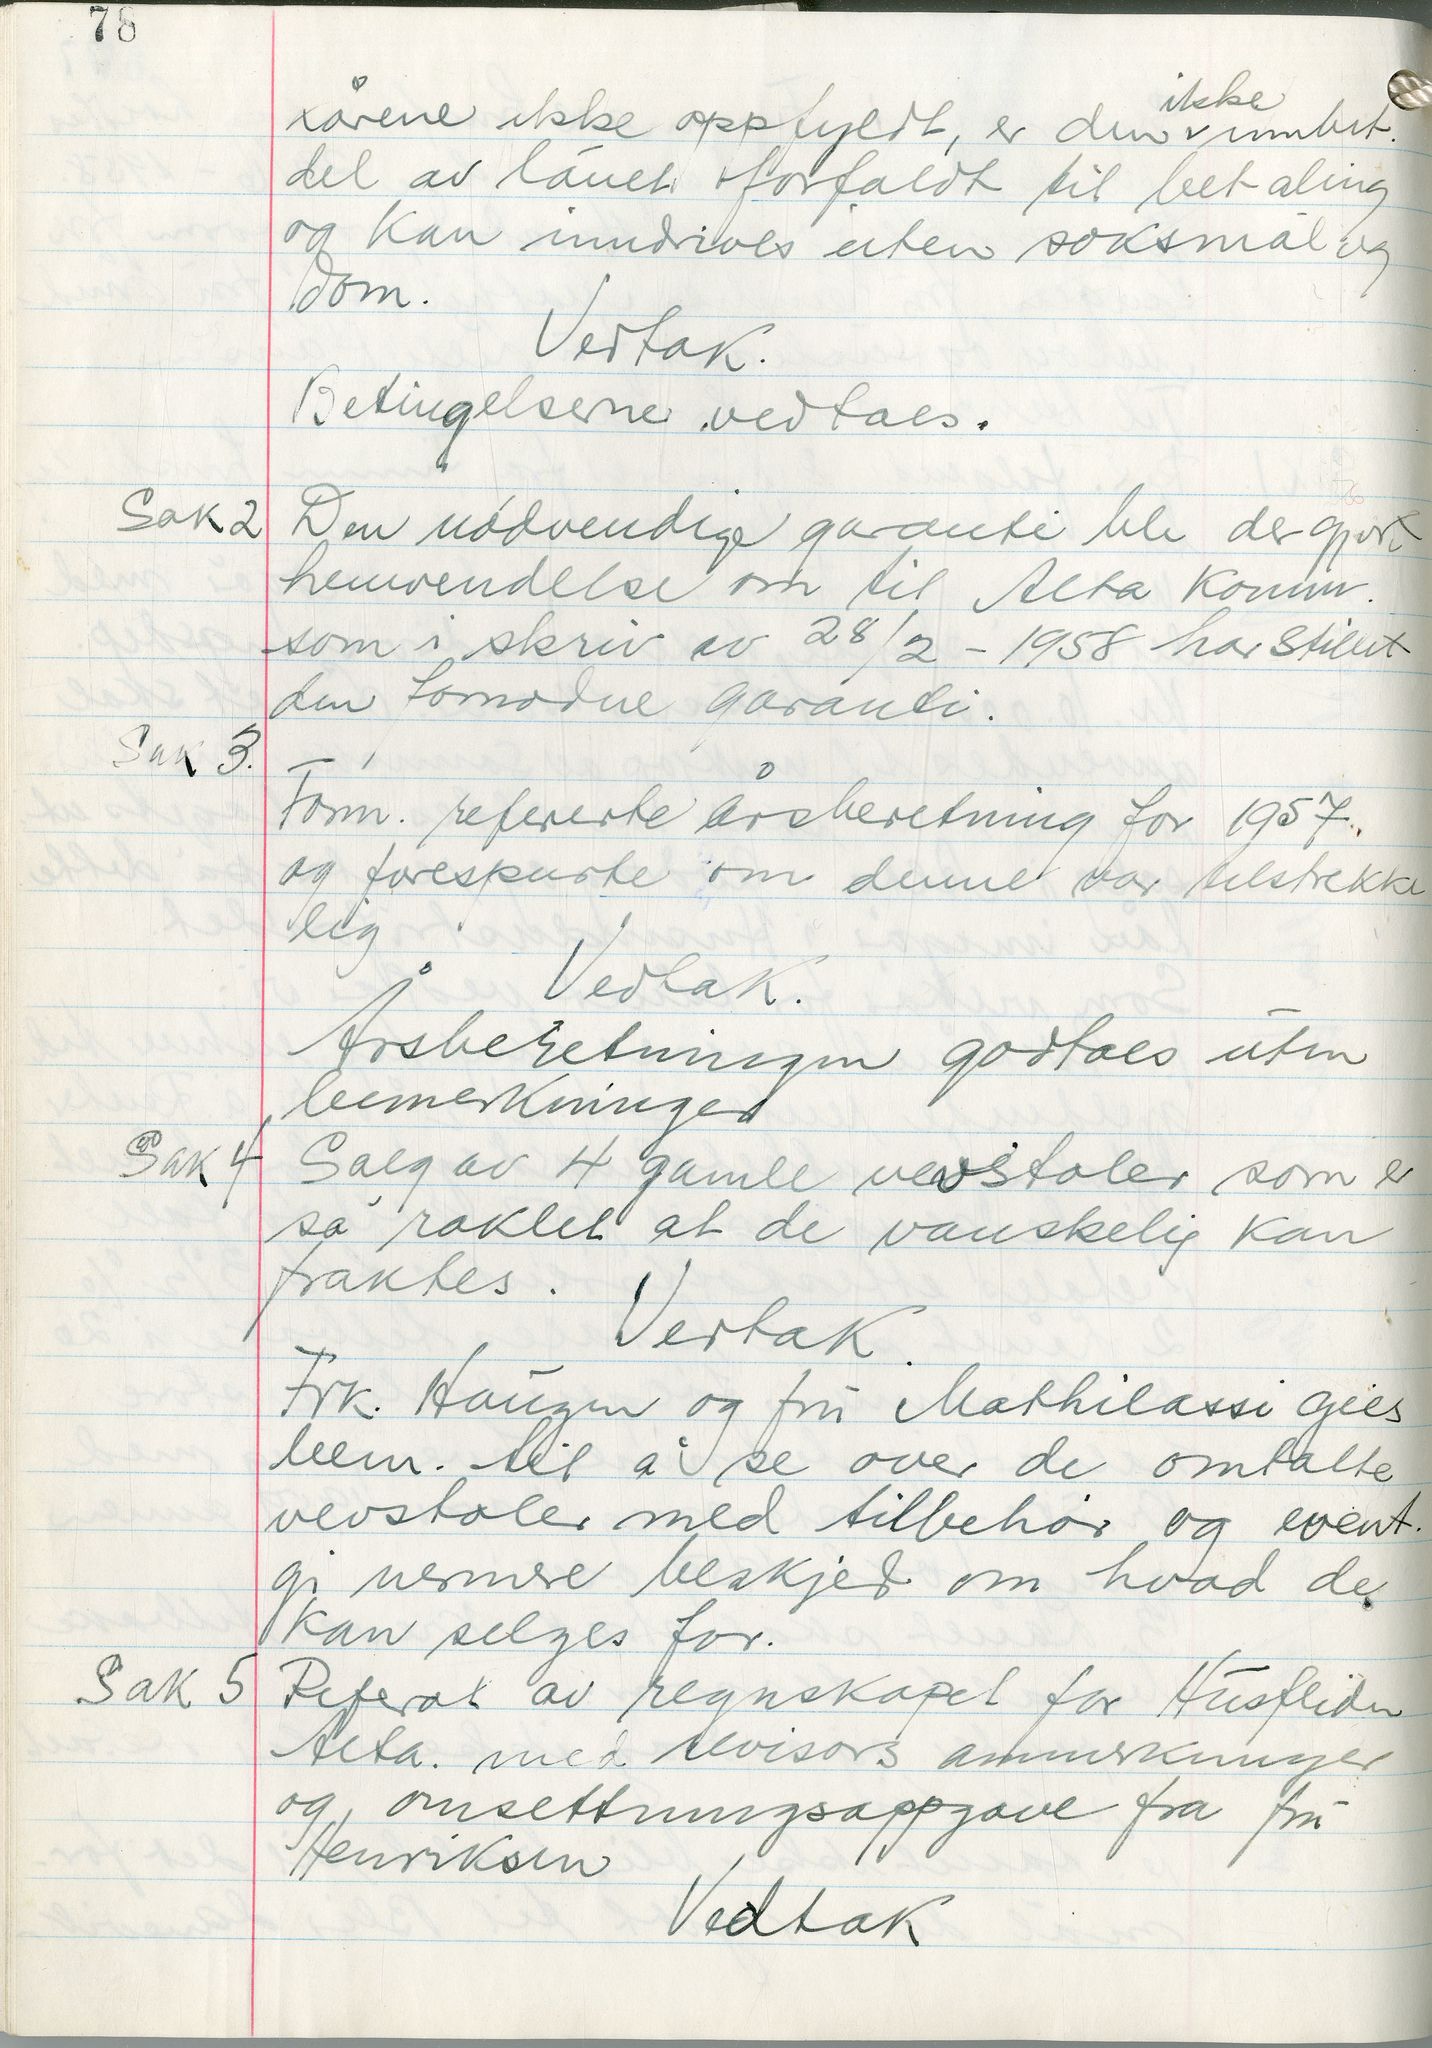 78
kårene ikke oppfyldt, er den ikke innbet.
del av lånet forfaldt til betaling
og kan inndrives uten søksmål og
dom.
Vedtak.
Betingelserne vedtaes.
Sak 2 Den nödvendige garanti ble der gjort
henvendelse om til Alta Komm.
som i skriv av 28/2 - 1958 har stillet
den fornødne garanti.
Sak 3.
Form. refererte årsberetning for 1957.
og forespurte om denne var tilstrekke
lig
Vedtak.
Årsberetningen godtaes uten
bemerkninger
Sak 4 Salg av 4 gamle vevstoler som er
så raklet at de vanskelig kan
fraktes.
Vedtak.
Frk. Haugen og fru Mathilassi gies
bem. til å se over de omtalte
vevstoler med tilbehør og event.
gi nermere beskjed om hvad de
kan selges for.
Sak 5 Referat av regnskapet for Husfliden
Alta. med revisors anmerkninger
og omsettningsoppgave fra fru
Henriksen
Vedtak